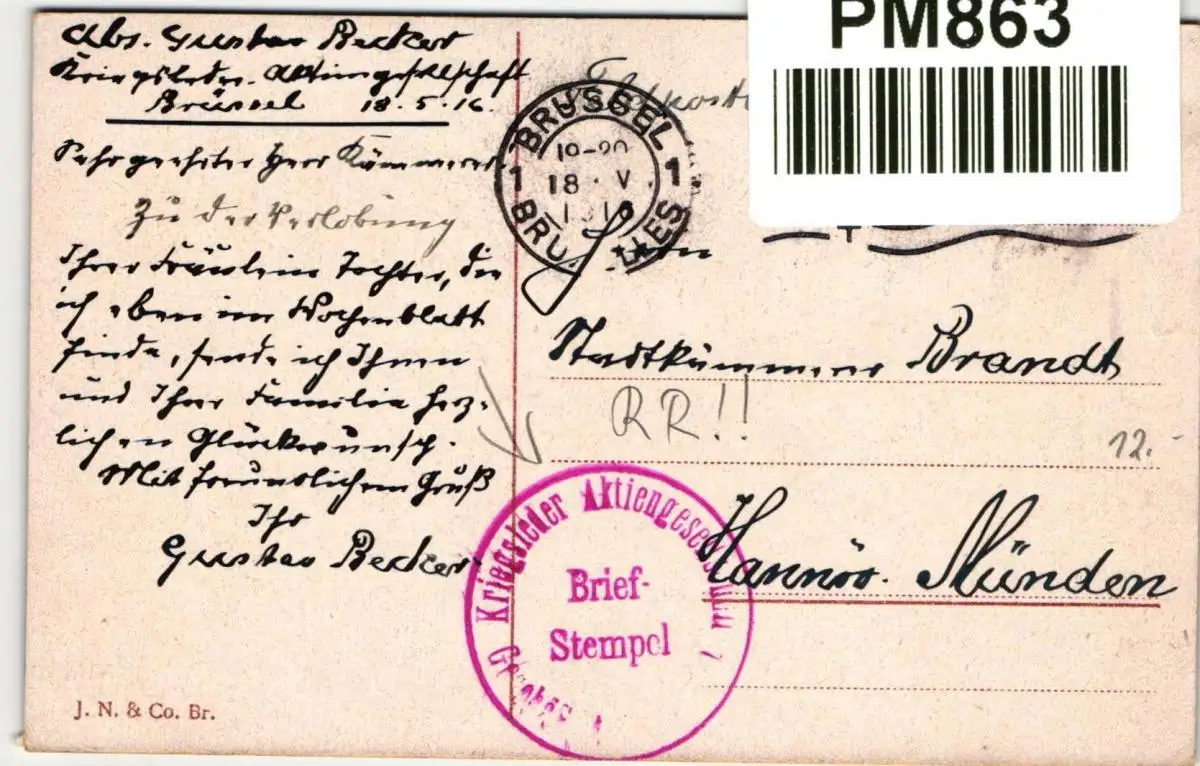 PM863
Abs. Gustav Becker
Kriegsleder-Aktiengesellschaft
Brüssel 18.5.16.
Feldpost
Sehr geehrter Herr Kämmerer.
Zu der Verlobung
Ihrer Fräulein Tochter, die
ich eben im Wochenblatt
finde, sende ich Ihnen
und Ihrer Familie herz-
lichen Glückwunsch.
Mit freundlichem Gruß
Ihr
Gustav Becker
BRUSSEL
1 1
19-20
18 · V
Stadtkämmerer Brandt
RR!!
12.-
Hannöv. Münden
Kriegsleder Aktiengesellschaft
Brief-
Stempel
J. N. & Co. Br.